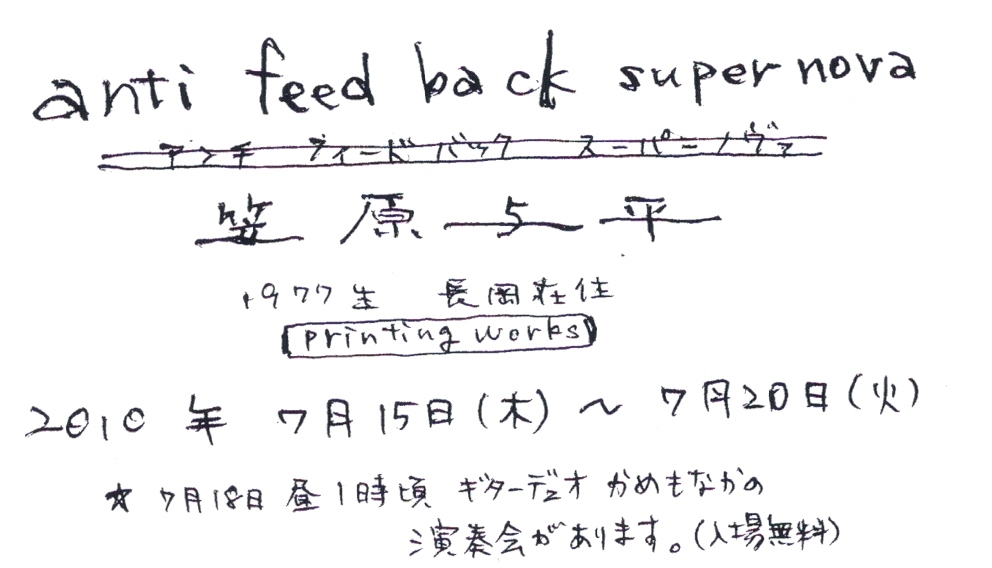 anti feed back super nova
アンチ フィードバック スーパーノヴァ
笠原 与平
1977生 長岡在住
printing works
2010年 7月15日(木)〜7月20日(火)
☆ 7月18日 昼1時頃 ギターデュオ かめもなかの
演奏会があります。(入場無料)